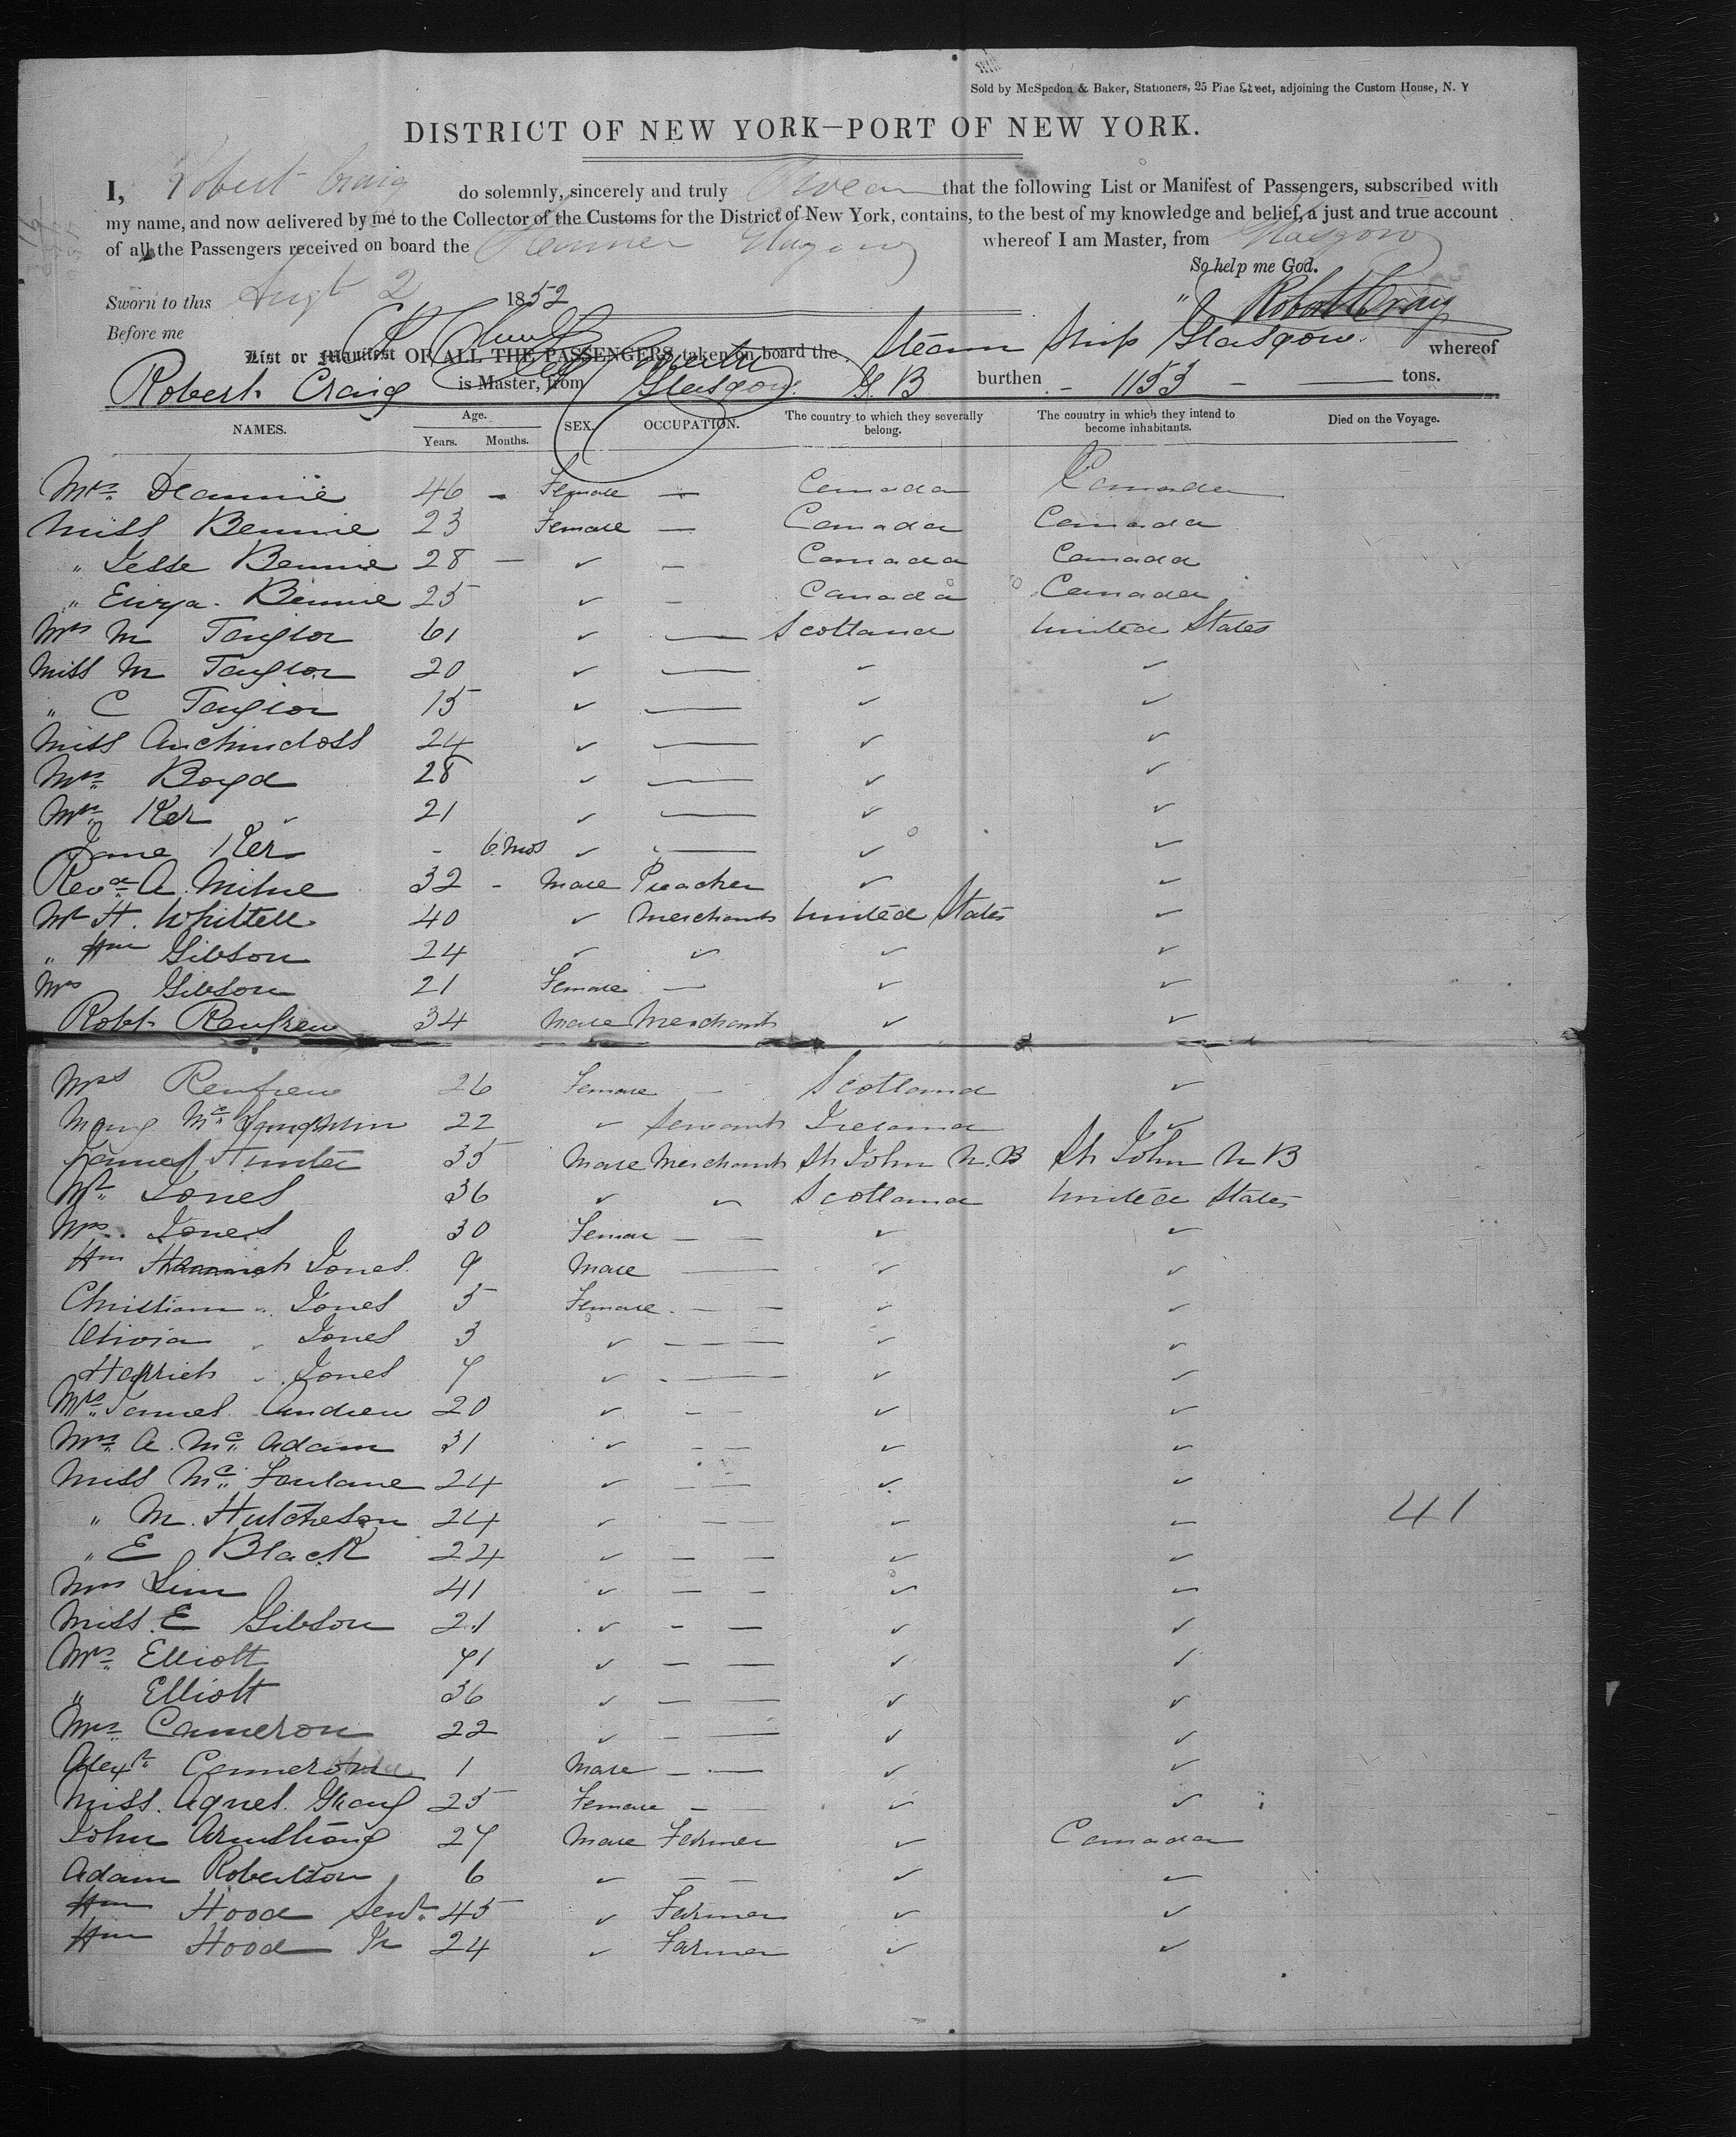 Sold by McSpedon & Baker, Stationers, 25 Pine Street, adjoining the Custom House, N. Y
DISTRICT OF NEW YORK—PORT OF NEW YORK.
I, Robert Craig do solemnly, sincerely and truly Swear that the following List or Manifest of Passengers, subscribed with
my name, and now delivered by me to the Collector of the Customs for the District of New York, contains, to the best of my knowledge and belief, a just and true account
of all the Passengers received on board the Steamer Glasgow whereof I am Master, from Glasgow
So help me God.
Sworn to this Augt 2 1852
Robert Craig
Before me
List or Manifest OF ALL THE PASSENGERS taken on board the Steam Ship Glasgow. whereof
Robert Craig is Master, from Glasgow. G. B burthen - 1153 - tons.
NAMES. Age. Years. Months. SEX. OCCUPATION. The country to which they severally belong. The country in which they intend to become inhabitants. Died on the Voyage.
Mrs 46 - Female — Canada Canada
Miss Bennie 23 Female — Canada Canada
" Jesse Bennie 28 — ✓ — Canada Canada
" Eliza. Bennie 25 ✓ — Canada Canada
Mrs M Taylor 61 ✓ — Scotland United States
Miss M Taylor 20 ✓ — ✓ ✓
" C Taylor 15 ✓ — ✓ ✓
Miss Auchincloss 24 ✓ — ✓ ✓
Mrs Boyd 28 ✓ — ✓ ✓
Mrs Ker 21 ✓ — ✓ ✓
Jane Ker - 6 mos ✓ — ✓ ✓
Revd A. Milne 32 - Male Preacher ✓ ✓
Mr H. Whittell 40 ✓ Merchant United States ✓
" Wm Gibson 24 ✓ ✓ ✓ ✓
Mrs Gibson 21 Female — ✓ ✓
Robt Renfrew 34 Male Merchant ✓ ✓
Mrs Renfrew 26 Female - Scotland ✓
Mary McLaughlin 22 ✓ Servant Ireland ✓
James Hunter 35 Male Merchant St John N. B St John N B
Mr Jones 36 ✓ ✓ Scotland United States
Mrs. Jones 30 Female — — ✓ ✓
Wm Jones. 9 Male — ✓ ✓
Christian " Jones 5 Female. — — ✓ ✓
Olivia " Jones 3 ✓ — — ✓ ✓
Harriet " Jones 7 ✓ — ✓ ✓
Mrs James Andrew 20 ✓ — — ✓ ✓
Mrs A. Mc Adam 31 ✓ — — ✓ ✓
Miss Mc 24 ✓ — — ✓ ✓
" M. Hutcheson 24 ✓ — — ✓ ✓ 41
" E Black 24 ✓ — — ✓ ✓
Mrs Sim 41 ✓ — — ✓ ✓
Miss. E Gibson 21 ✓ - — ✓ ✓
Mrs Elliott 71 ✓ — — ✓ ✓
" Elliott 36 ✓ — — ✓ ✓
Mrs Cameron 22 ✓ - — ✓ ✓
Alexr Cameron 1 Male — — ✓ ✓
Miss. Agnes. 25 Female — — ✓ ✓
John Armstrong 27 Male Farmer ✓ Canada
Adam Robertson 6 ✓ — — ✓ ✓
Wm Hood Senr 45 ✓ Farmer ✓ ✓
Wm Hood Jr 24 ✓ Farmer ✓ ✓